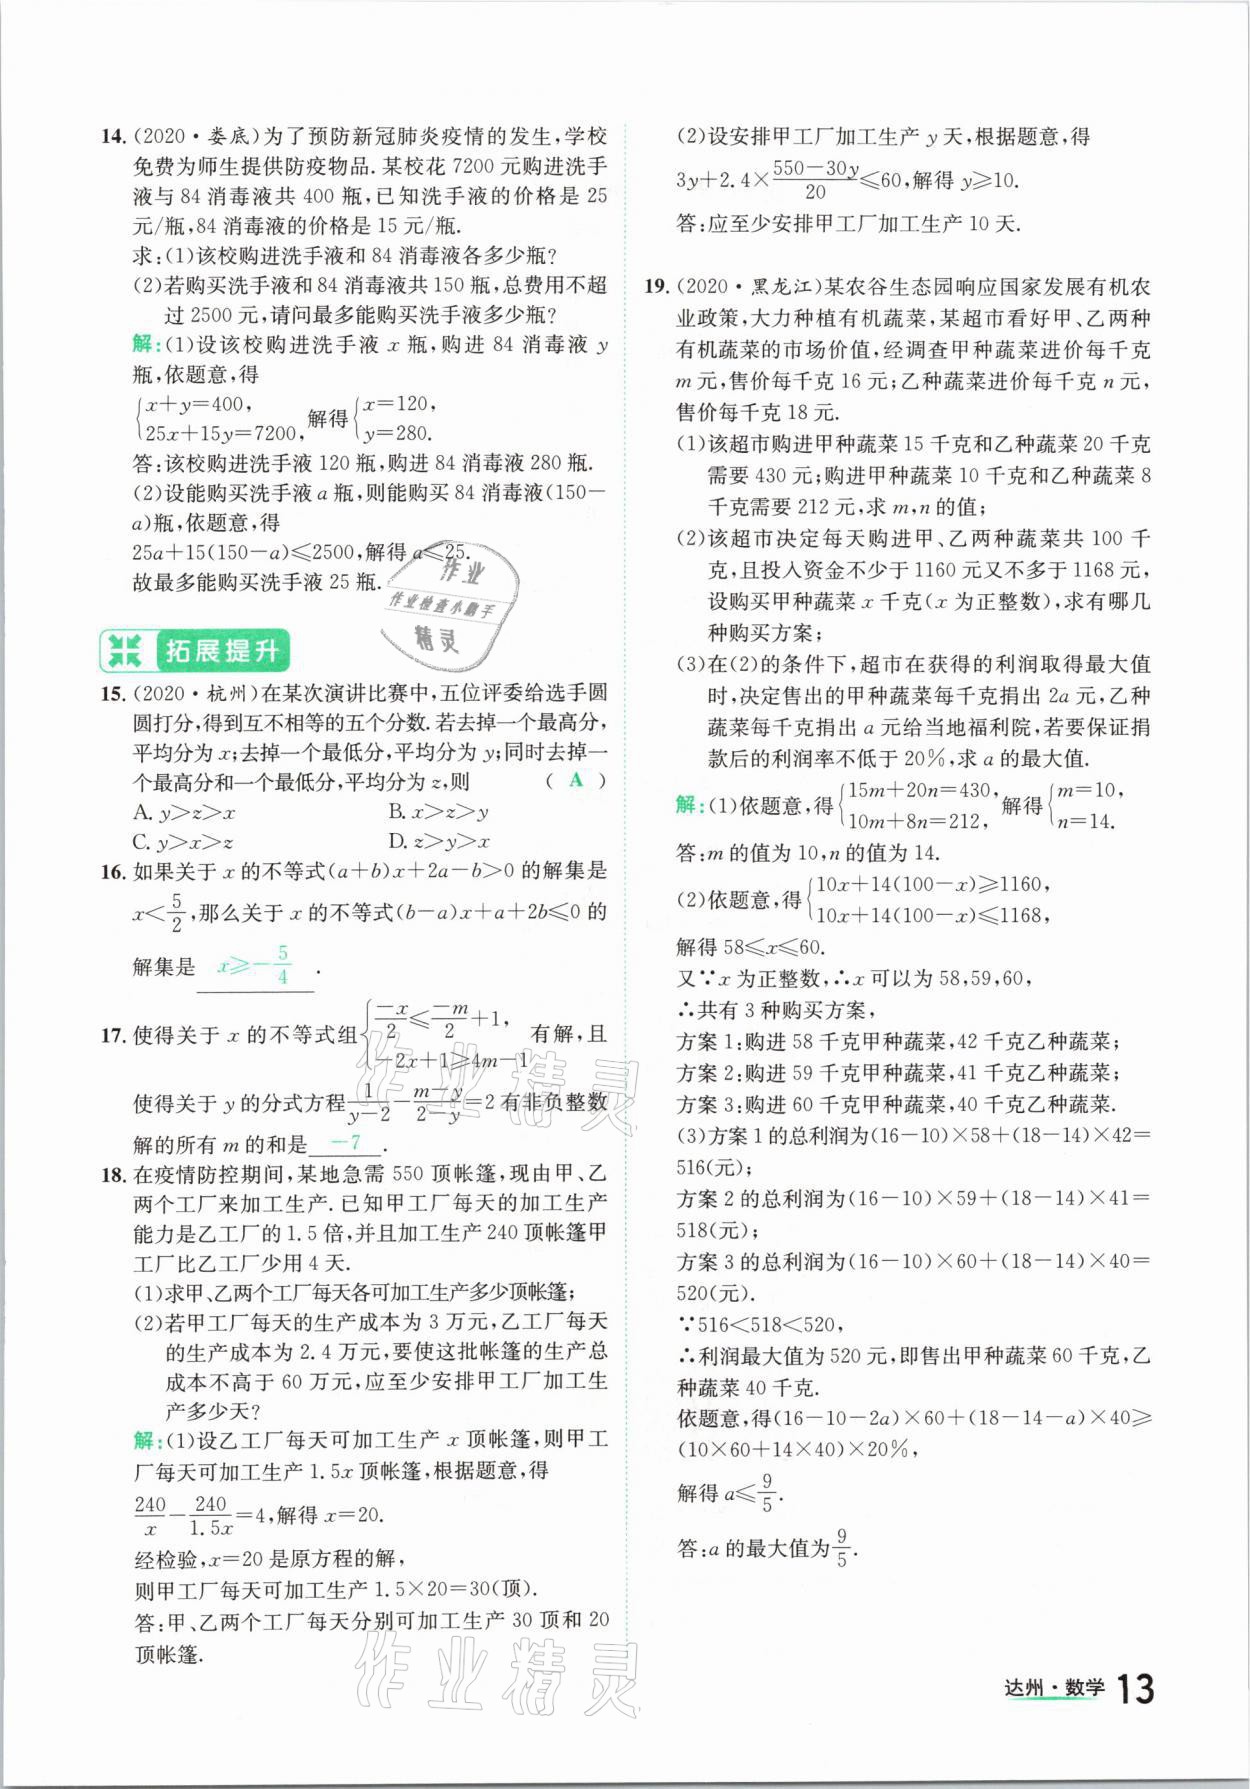 14.(2020·娄底)为了预防新冠肺炎疫情的发生,学校
免费为师生提供防疫物品.某校花7200元购进洗手
液与84消毒液共400瓶,已知洗手液的价格是25
元/瓶,84消毒液的价格是15元/瓶.
求:(1)该校购进洗手液和84消毒液各多少瓶?
(2)若购买洗手液和84消毒液共150瓶,总费用不超
过2500元,请问最多能购买洗手液多少瓶?
解:(1)设该校购进洗手液x瓶,购进84消毒液y
瓶,依题意,得
{x+y=400, 25x+15y=7200, 解得 {x=120, y=280.
答:该校购进洗手液120瓶,购进84消毒液280瓶.
(2)设能购买洗手液a瓶,则能购买84消毒液(150-
a)瓶,依题意,得
25a+15(150-a)≤2500,解得a≤25.
故最多能购买洗手液25瓶.
作业
作业检查小助手
精灵
拓展提升
15.(2020·杭州)在某次演讲比赛中,五位评委给选手圆
圆打分,得到互不相等的五个分数.若去掉一个最高分,
平均分为x;去掉一个最低分,平均分为y;同时去掉一
个最高分和一个最低分,平均分为z,则 ( A )
A. y>z>x B. x>z>y
C. y>x>z D. z>y>x
16.如果关于x的不等式(a+b)x+2a-b>0的解集是
x<5/2,那么关于x的不等式(b-a)x+a+2b≤0的
解集是 x≥-5/4 .
17.使得关于x的不等式组{-x/2≤-m/2+1, -2x+1≥4m-1 有解,且
使得关于y的分式方程1/(y-2)-(m-y)/(2-y)=2有非负整数
解的所有m的和是 -7 .
18.在疫情防控期间,某地急需550顶帐篷,现由甲、乙
两个工厂来加工生产.已知甲工厂每天的加工生产
能力是乙工厂的1.5倍,并且加工生产240顶帐篷甲
工厂比乙工厂少用4天.
(1)求甲、乙两个工厂每天各可加工生产多少顶帐篷;
(2)若甲工厂每天的生产成本为3万元,乙工厂每天
的生产成本为2.4万元,要使这批帐篷的生产总
成本不高于60万元,应至少安排甲工厂加工生
产多少天?
解:(1)设乙工厂每天可加工生产x顶帐篷,则甲工
厂每天可加工生产1.5x顶帐篷,根据题意,得
240/x-240/1.5x=4,解得x=20.
经检验,x=20是原方程的解,
则甲工厂每天可加工生产1.5×20=30(顶).
答:甲、乙两个工厂每天分别可加工生产30顶和20
顶帐篷.
(2)设安排甲工厂加工生产y天,根据题意,得
3y+2.4×(550-30y)/20≤60,解得y≥10.
答:应至少安排甲工厂加工生产10天.
19.(2020·黑龙江)某农谷生态园响应国家发展有机农
业政策,大力种植有机蔬菜,某超市看好甲、乙两种
有机蔬菜的市场价值,经调查甲种蔬菜进价每千克
m元,售价每千克16元;乙种蔬菜进价每千克n元,
售价每千克18元.
(1)该超市购进甲种蔬菜15千克和乙种蔬菜20千克
需要430元;购进甲种蔬菜10千克和乙种蔬菜8
千克需要212元,求m,n的值;
(2)该超市决定每天购进甲、乙两种蔬菜共100千
克,且投入资金不少于1160元又不多于1168元,
设购买甲种蔬菜x千克(x为正整数),求有哪几
种购买方案;
(3)在(2)的条件下,超市在获得的利润取得最大值
时,决定售出的甲种蔬菜每千克捐出2a元,乙种
蔬菜每千克捐出a元给当地福利院,若要保证捐
款后的利润率不低于20%,求a的最大值.
解:(1)依题意,得{15m+20n=430, 10m+8n=212, 解得{m=10, n=14.
答:m的值为10,n的值为14.
(2)依题意,得{10x+14(100-x)≥1160, 10x+14(100-x)≤1168,
解得58≤x≤60.
又∵x为正整数,∴x可以为58,59,60,
∴共有3种购买方案,
方案1:购进58千克甲种蔬菜,42千克乙种蔬菜;
方案2:购进59千克甲种蔬菜,41千克乙种蔬菜;
方案3:购进60千克甲种蔬菜,40千克乙种蔬菜.
(3)方案1的总利润为(16-10)×58+(18-14)×42=
516(元);
方案2的总利润为(16-10)×59+(18-14)×41=
518(元);
方案3的总利润为(16-10)×60+(18-14)×40=
520(元).
∵516<518<520,
∴利润最大值为520元,即售出甲种蔬菜60千克,乙
种蔬菜40千克.
依题意,得(16-10-2a)×60+(18-14-a)×40≥
(10×60+14×40)×20%,
解得a≤9/5.
答:a的最大值为9/5.
作业精灵
作业精灵
达州·数学 13